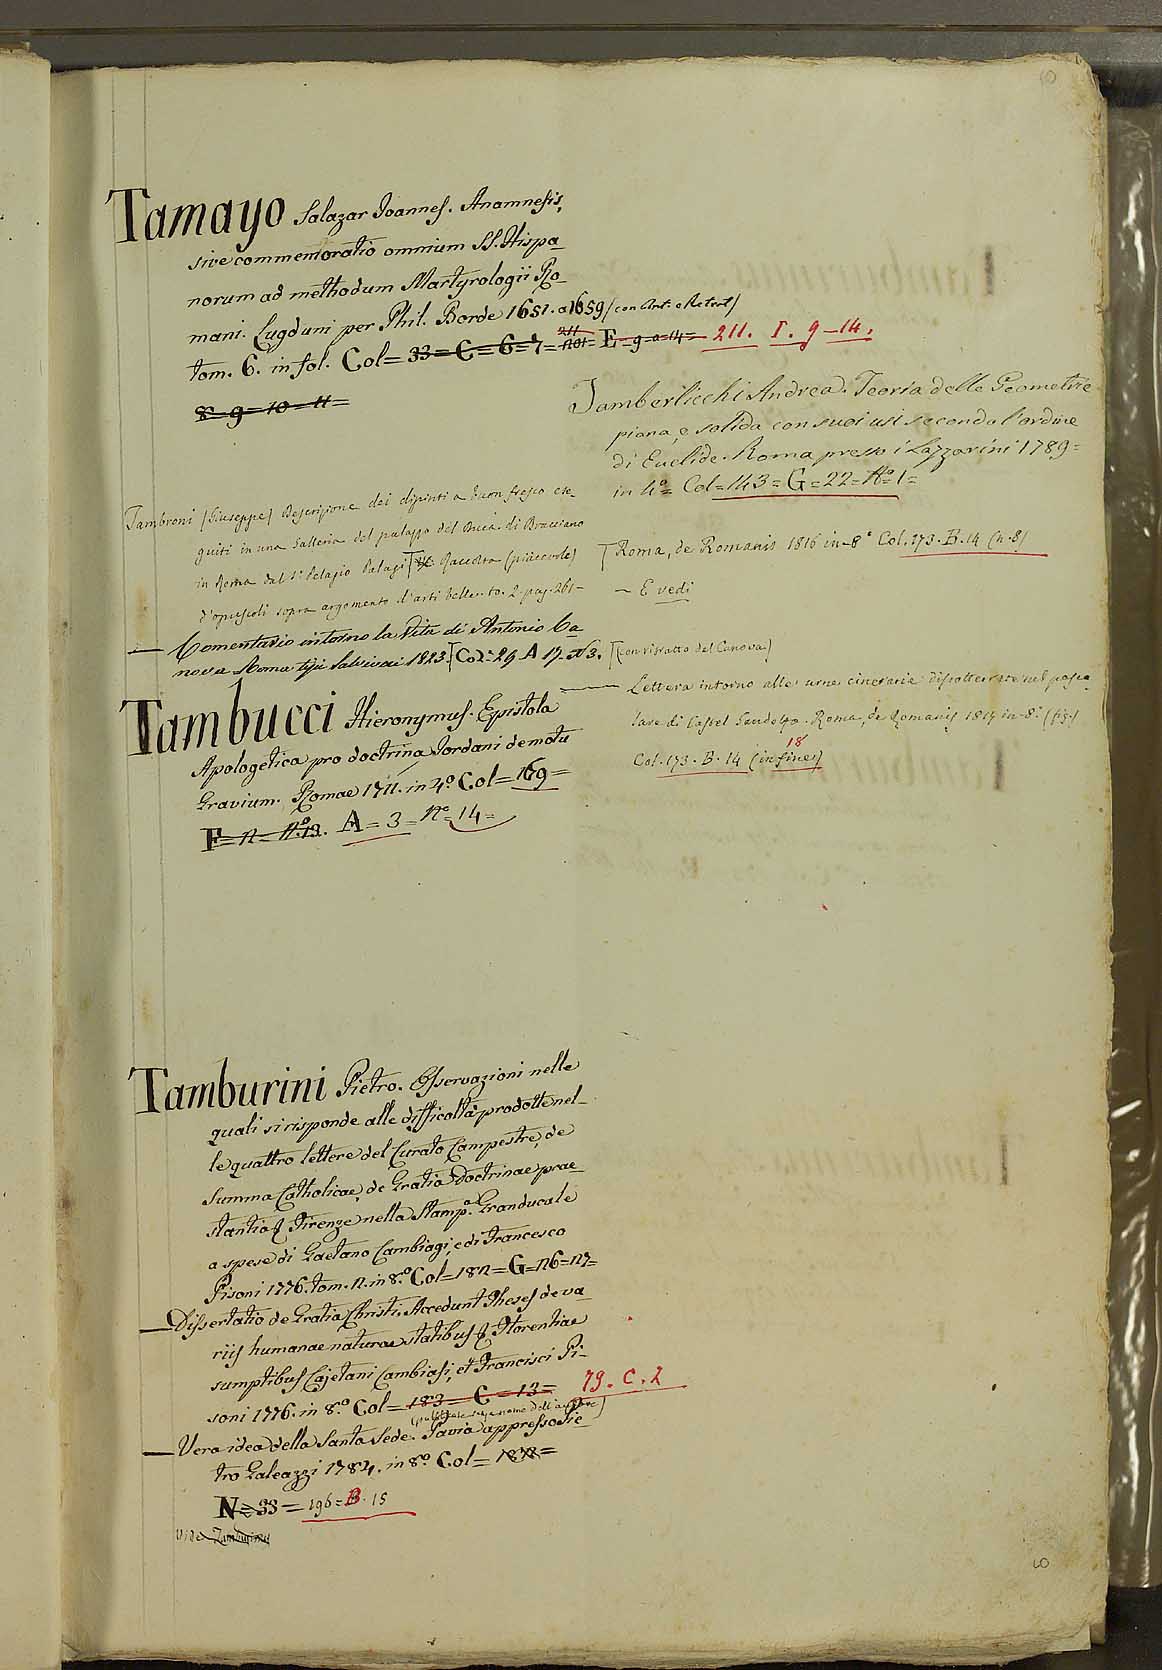 Tamayo Salazar Joannes. Anamnesis,
sive commemoratio omnium SS. Hispa_
norum ad methodum Martyrologii Ro_
mani. Lugduni per Phil. Borde 1651. a 1659 (con Ant. e Retrat)
tom. 6. in fol. Col= 33=C=6=7= 211 E=9 a 14= 211. I. 9-14.
8=9=10=11=
Tamberlicchi Andrea. Teoria delle Geometrie
piana, e solida con suoi usi secondo l'ordine
di Euclide. Roma presso i Lazzarini 1789=
in 4º= Col=143=G=22=Nº 1=
Tambroni (Giuseppe) Descrizione dei dipinti a buon fresco ese_
guiti in una Galleria del palazzo del Duca di Bracciano
in Roma dal Sr Pelagio Palagi [ Raccolta (piacevole)
d'opuscoli sopra argomento d'arti belle. to. 2. pag. 261-
[Roma, de Romanis 1816 in-8º Col. 173. B. 14 (n. 8)
— E vedi
— Comentario intorno la Vita di Antonio Ca_
nova Roma typi Salviani 1823. [Col=29 A 17 N 3. [(con ritratto del Canova)
— Lettera intorno alle urne cinerarie disotterrate nel pasco_
lare di Castel Gandolfo. Roma, de Romanis 1817 in-8º (fig.)
18
Col. 173. B. 14 (in fine)
Tambucci Hieronymus. Epistola
Apologetica pro doctrina Jordani de motu
Gravium. Romae 1711. in 4º Col=169=
F=12=Nº 13. A=3=Nº=14=
Tamburini Pietro. Osservazioni nelle
quali si risponde alle difficoltà prodotte nel_
le quattro lettere del Curato Campestre, de
Summa Catholicae, de Gratia Doctrinae prae_
stantia & Firenze nella Stampª. Granducale
a spese di Gaetano Cambiagi, e di Francesco
Pisoni 1776. tom. 2. in 8.º Col=182=G=26=27=
— Dissertatio de Gratia Christi. Accedunt Theses de va_
riis humanae naturae statibus & Florentiae
sumptibus Cajetani Cambiasi, et Francisci Pi_
soni 1776. in 8.º Col=183=C=13= 79. C. 2
(pubblicate senza nome dell'autore)
— Vera idea della Santa Sede. Pavia appresso Pie_
tro Galeazzi 1784. in 8.º Col= =
N=33= 196=B. 15
Vide Tamburinus